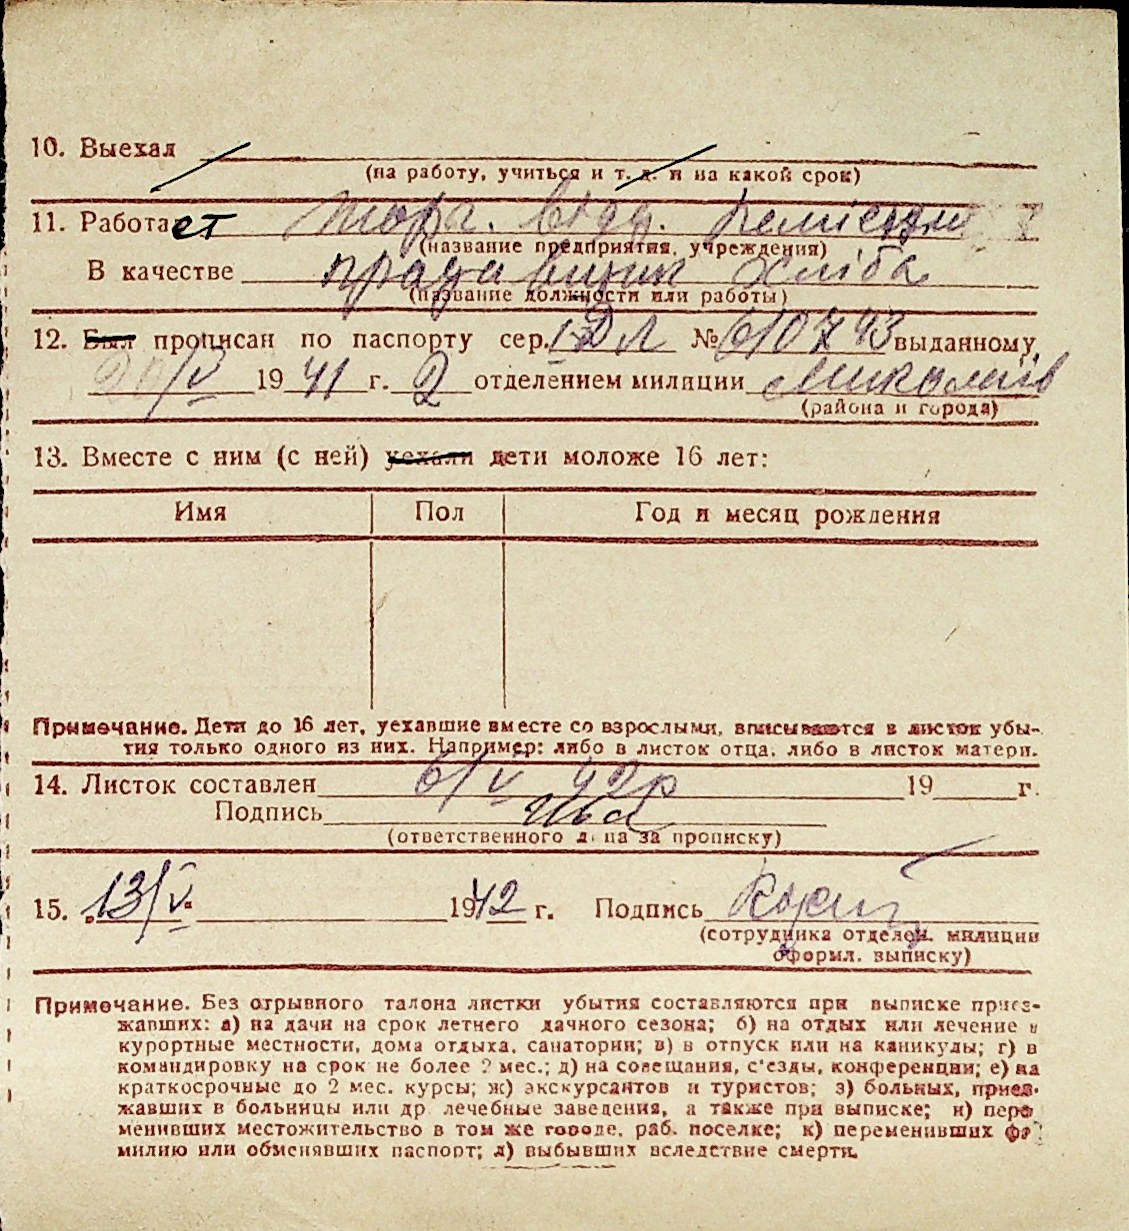 10. Выехал
(на работу, учиться и т. д. и на какой срок)
11. Работает Торг. відд.
(название предприятия, учреждения)
В качестве продавщик хліба
(название должности или работы)
12. Был прописан по паспорту сер. № 610743 выданному
/V 1941 г. 2 отделением милиции Миколаїв
(района и города)
13. Вместе с ним (с ней) уехали дети моложе 16 лет:
Имя Пол Год и месяц рождения
Примечание. Дети до 16 лет, уехавшие вместе со взрослыми, вписываются в листок убы-
тия только одного из них. Например: либо в листок отца, либо в листок матери.
14. Листок составлен 6/V 42р 19 г.
Подпись
(ответственного лица за прописку)
15. 13/V. 1942 г. Подпись
(сотрудника отделен. милиции
оформл. выписку)
Примечание. Без отрывного талона листки убытия составляются при выписке приез-
жавших: а) на дачи на срок летнего дачного сезона; б) на отдых или лечение в
курортные местности, дома отдыха, санатории; в) в отпуск или на каникулы; г) в
командировку на срок не более 2 мес.; д) на совещания, с'езды, конференции; е) на
краткосрочные до 2 мес. курсы; ж) экскурсантов и туристов; з) больных, приез-
жавших в больницы или др лечебные заведения, а также при выписке; и) пере
менивших местожительство в том же городе, раб. поселке; к) переменивших фа
милию или обменявших паспорт; л) выбывших вследствие смерти.